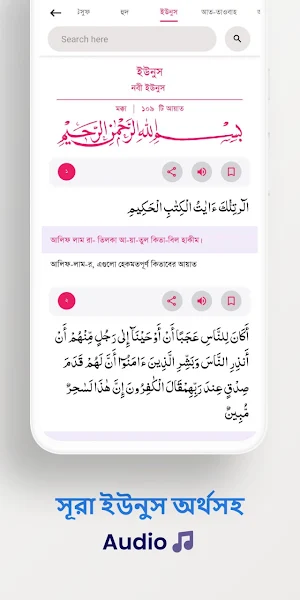 ইউসুফ হুদ ইউনুস আত-তাওবাহ
Search here
ইউনুস
নবী ইউনুস
মক্কা | ১০৯ টি আয়াত
بِسْمِ اللهِ الرَّحْمٰنِ الرَّحِيْمِ
১
الٓرٰ تِلْكَ ءَايٰتُ الْكِتٰبِ الْحَكِيْمِ
আলিফ লাম রা- তিলকা আ-য়া-তুল কিতা-বিল হাকীম।
আলিফ-লাম-র, এগুলো হেকমতপূর্ণ কিতাবের আয়াত
২
أَكَانَ لِلنَّاسِ عَجَبًا أَنْ أَوْحَيْنَآ إِلٰى رَجُلٍ مِّنْهُمْ أَنْ
أَنْذِرِ النَّاسَ وَبَشِّرِ الَّذِيْنَ ءَامَنُوْٓا أَنَّ لَهُمْ قَدَمَ
صِدْقٍ عِندَ رَبِّهِمْ قَالَ الْكٰفِرُونَ إِنَّ هٰذَا لَسٰحِرٌ
مُّبِيْنٌ
সূরা ইউনুস অর্থসহ
Audio